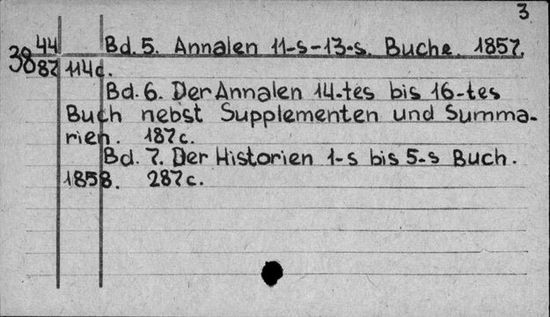 3
44 Bd. 5. Annalen 11-s-13-s. Buche. 1857.
3882 114c.
Bd. 6. Der Annalen 14-tes bis 16-tes
Buch nebst Supplementen und Summa-
rien. 187c.
Bd. 7. Der Historien 1-s bis 5-s Buch.
1858. 287c.